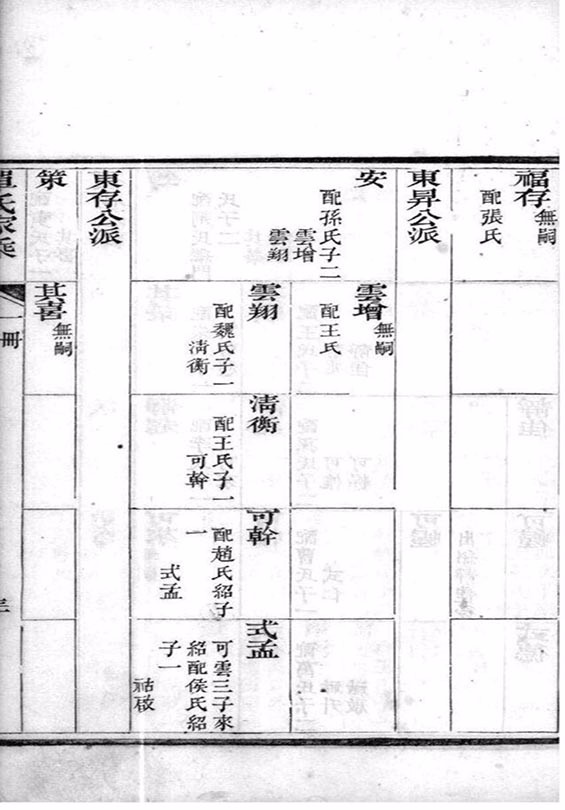 福存
無嗣
配張氏
東昇公派
安
配孫氏子二
雲增
雲翔
雲增
無嗣
配王氏
雲翔
配魏氏子一
清衡
清衡
配王氏子一
可幹
可幹
配趙氏紹子
一
式孟
式孟
可雲三子來
紹配侯氏紹
子一
祜啟
東存公派
策
其喜
無嗣
氏家乘
一冊